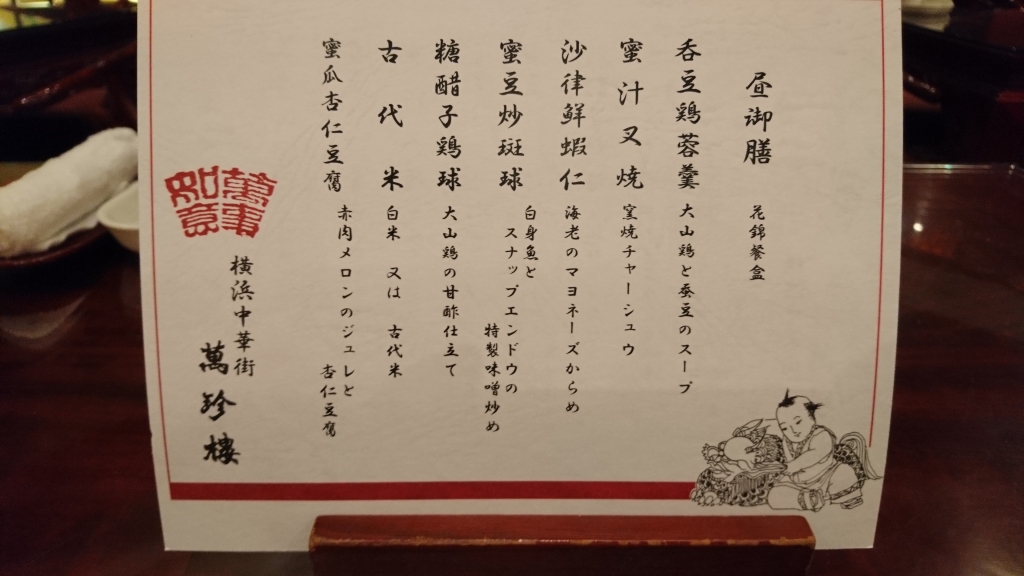 昼御膳 花錦餐盒
呑豆鶏蓉羹 大山鶏と蚕豆のスープ
蜜汁叉焼 窯焼チャーシュウ
沙律鮮蝦仁 海老のマヨネーズからめ
蜜豆炒斑球 白身魚と
スナップエンドウの
特製味噌炒め
糖醋子鶏球 大山鶏の甘酢仕立て
古代米 白米 又は 古代米
蜜瓜杏仁豆腐 赤肉メロンのジュレと
杏仁豆腐
萬事如意
横浜中華街
萬珍樓